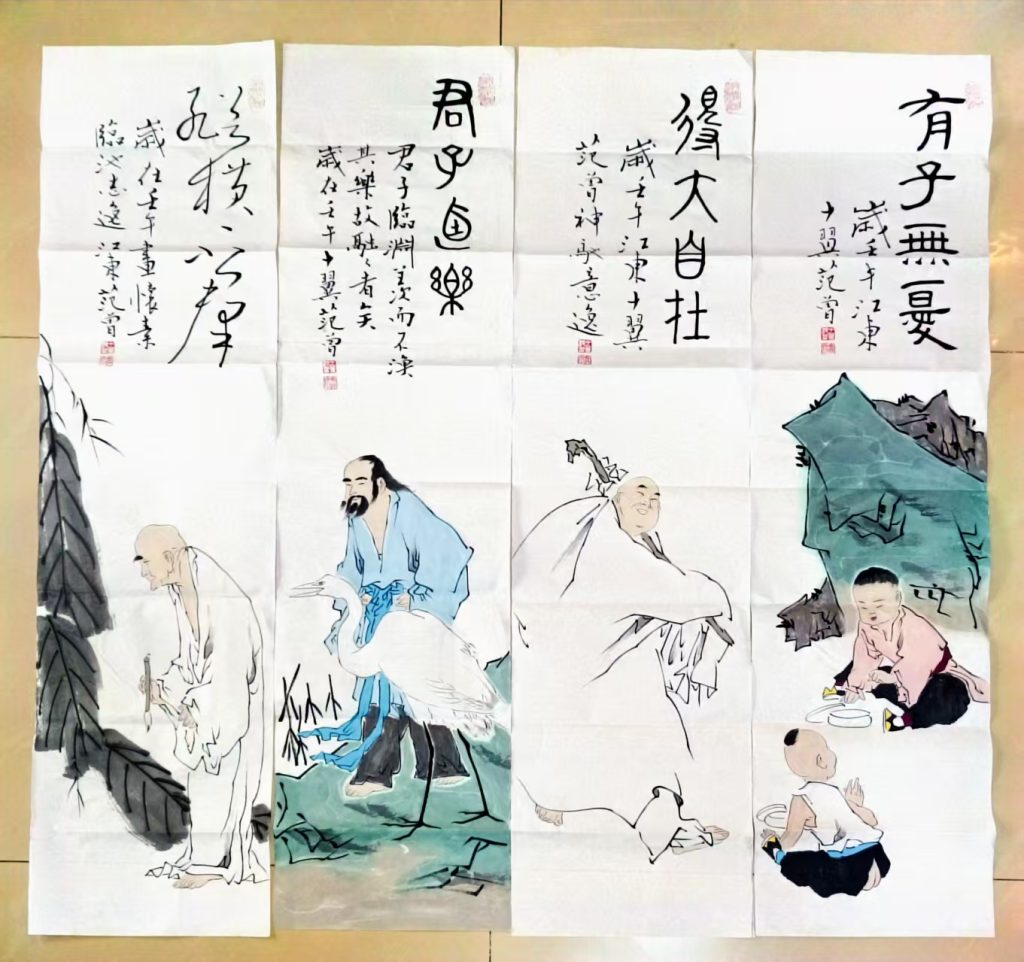 有子無憂
歲壬午江東
十翼范曾
得大自在
歲壬午江東十翼
范曾神馭意逸
君子逌樂
君子臨淵羨而不漁
其樂故融々者矣
歲在壬午十翼范曾
縱橫
歲在壬午畫懷素
臨池逸江東范曾